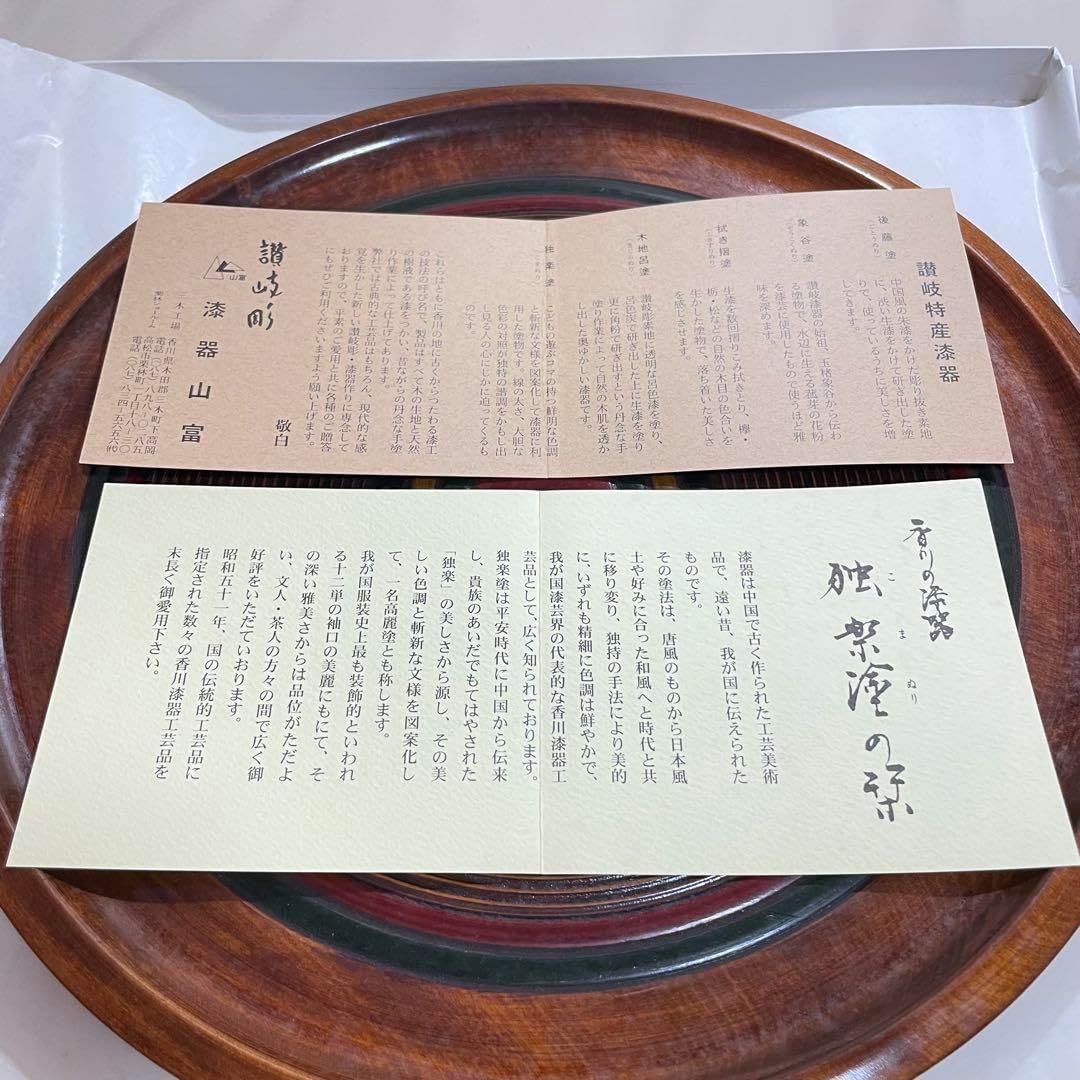 讃岐特産漆器
後藤塗
(ごとうぬり)
中国風の朱漆をかけた彫り抜き素地
に、渋い生漆をかけて研ぎ出した塗
りで、使っているうちに美しさを増
してきます。
象谷塗
(ぞうこくぬり)
讃岐漆器の始祖、玉楮象谷から伝わ
る塗物で、水辺に生える菰茎の花粉
を漆芸に使用したもので使うほど雅
味を深めます。
拭き摺塗
生漆を数回摺りこみ拭きとり、欅・
栃・松などの自然の木目の色合いを
生かした塗物で、落ち着いた美しさ
を感じさせます。
木地呂塗
讃岐彫素地に透明な呂色漆を塗り、
呂色炭で研ぎ出した上に生漆を塗り
更に角粉で研ぎ出すという丹念な手
塗り作業によって自然の木肌を透か
し出した奥ゆかしい漆器です。
独楽塗
こどもの遊ぶコマの持つ鮮明な色調
と斬新な文様を図案化して漆器に利
用した塗物です。線の太さ、大胆な
色彩の対照が独特の諧調をかもし出
し見る人の心にしかに迫ってくるも
のです。
これらはともに香川の地に古くからつたわる漆工
の技法の呼び名で、製品はすべて木の生地と天然
の樹液である漆をつかい、昔ながらの丹念な手塗
り作業によって仕上げてあります。
弊社では古典的な工芸品はもちろん、現代的な感
覚を生かした新しい讃岐彫・漆器作りに専念して
おりますので、平素のご愛用と共に各種のご贈答
にもぜひご利用くださいますよう願い上げます。
敬白
讃岐彫
山富
漆器山富
三木工場 香川県木田郡三木町下高岡
栗林ショールーム 高松市栗林町
香川の漆器
独楽塗の栞
こまぬり
漆器は中国で古く作られた工芸美術
品で、遠い昔、我が国に伝えられた
ものです。
その塗法は、唐風のものから日本風
土や好みに合った和風へと時代と共
に移り変り、独持の手法により美的
に、いずれも精細に色調は鮮やかで、
我が国漆芸界の代表的な香川漆器工
芸品として、広く知られております。
独楽塗は平安時代に中国から伝来
し、貴族のあいだでもてはやされた
「独楽」の美しさから源し、その美
しい色調と斬新な文様を図案化し
て、一名高麗塗とも称します。
我が国服装史上最も装飾的といわれ
る十二単の袖口の美麗にもにて、そ
の深い雅美さからは品位がただよ
い、文人・茶人の方々の間で広く御
好評をいただております。
昭和五十一年、国の伝統的工芸品に
指定された数々の香川漆器工芸品を
末長く御愛用下さい。